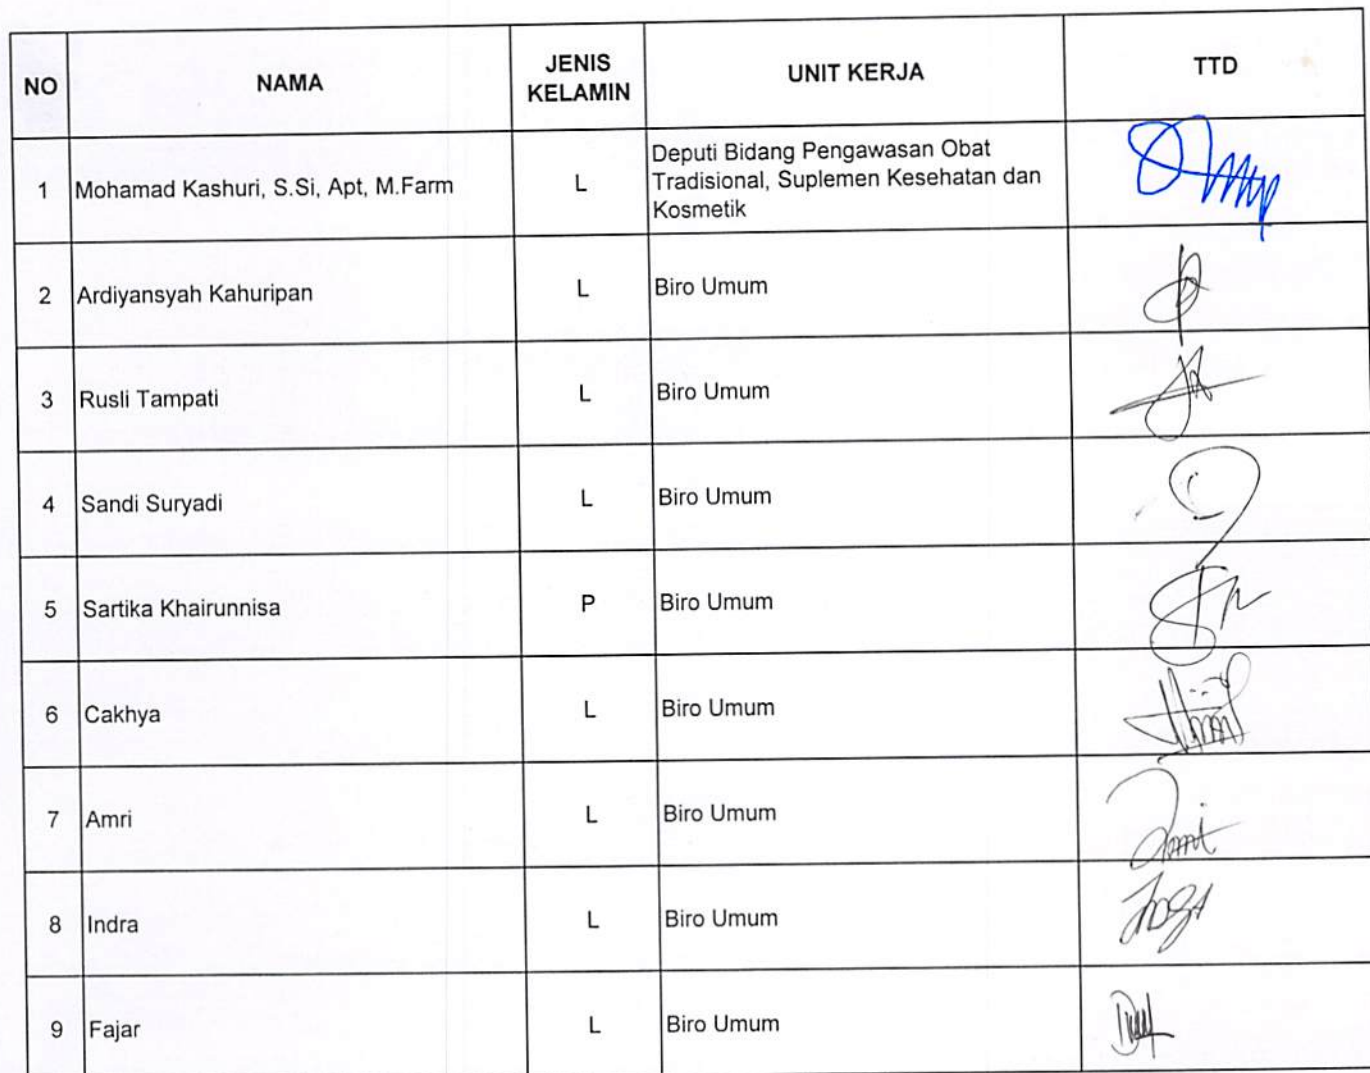 NO NAMA JENIS KELAMIN UNIT KERJA TTD
1 Mohamad Kashuri, S.Si, Apt, M.Farm L Deputi Bidang Pengawasan Obat
Tradisional, Suplemen Kesehatan dan
Kosmetik
2 Ardiyansyah Kahuripan L Biro Umum
3 Rusli Tampati L Biro Umum
4 Sandi Suryadi L Biro Umum
5 Sartika Khairunnisa P Biro Umum
6 Cakhya L Biro Umum
7 Amri L Biro Umum
8 Indra L Biro Umum
9 Fajar L Biro Umum